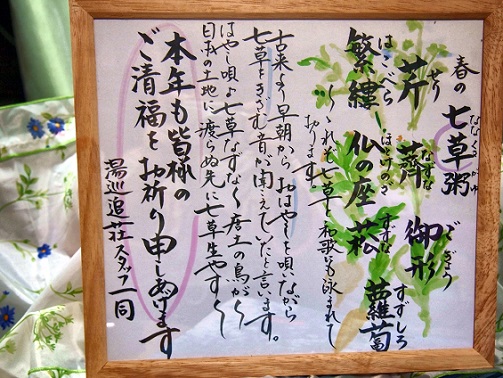 春の七草粥
ななくさがゆ
芹 薺 御形
せり なずな ごぎょう
繁縷 仏の座 菘 蘿蔔
はこべら ほとけのざ すずな すずしろ
これも七草と和歌にも詠まれて
おります。
古来より早朝からおはやしを唄いながら
七草をきざむ音が聞えていたと言います。
はやし唄よ 七草なずな〜唐土の鳥が〜
日本の土地に渡らぬ先に七草生やす〜〜
本年も皆様の
ご清福をお祈り申しあげます
湯巡追荘スタッフ一同